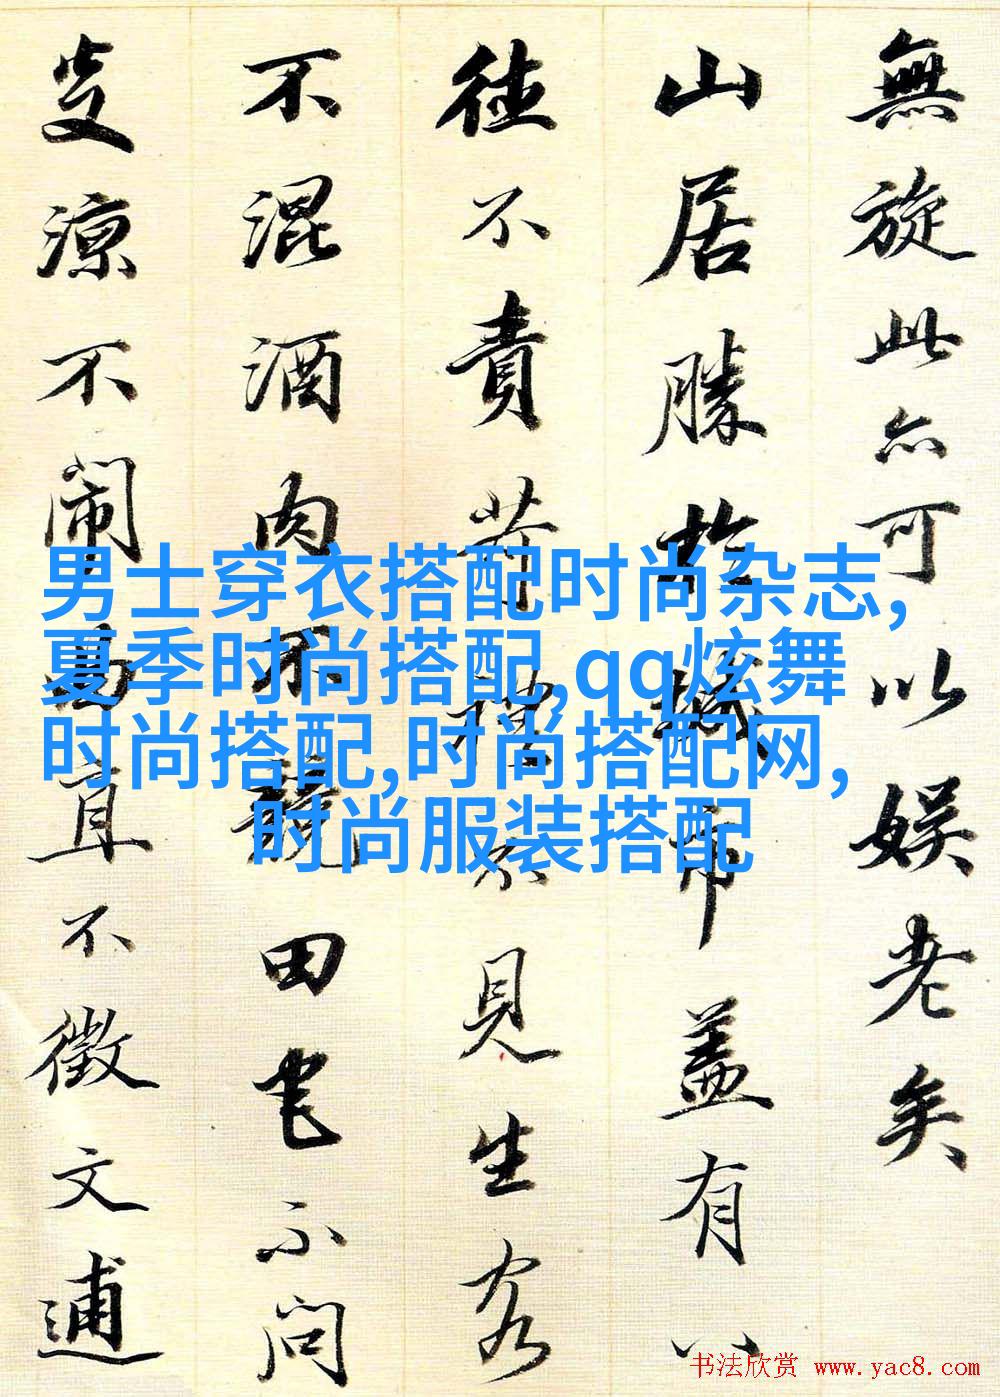 無旋此亦可以娱老矣
山居勝於城市盖有八
徳不責苛禮不見生客
不混酒肉不競田宅不问
炎凉不闹曲直不徵文逋
男士穿衣搭配时尚杂志,
夏季时尚搭配,qq炫舞
时尚搭配,时尚搭配网,
时尚服装搭配
书法欣赏 www.yac8.com